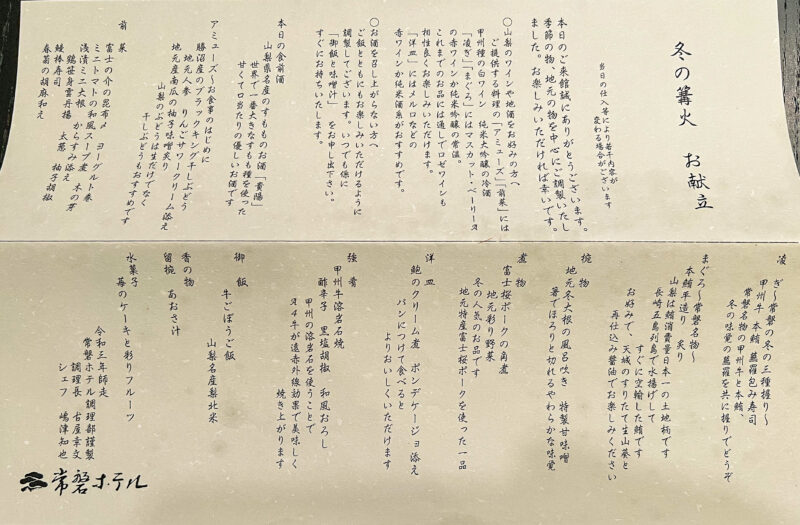 冬の篝火　お献立
当日の仕入等により若干内容が
変わる場合がございます
本日のご来館誠にありがとうございます。
季節の物、地元の物を中心にご調製いたし
ました。お楽しみいただければ幸いです。
〇山梨のワインや地酒をお好みの方へ
ご提供する料理の「アミューズ」「前菜」には
甲州種の白ワイン　純米大吟醸の冷酒
「凌ぎ」「まぐろ」にはマスカット・ベーリーA
の赤ワインか純米吟醸の常温。
これまでのお品には通しでロゼワインも
相性良くお楽しみいただけます。
「洋皿」にはメルロなどの
赤ワインか純米酒系がおすすめです。
〇お酒を召し上がらない方へ
ご飯とともにもお楽しみいただけるように
調製してございます。いつでも係に
「御飯と味噌汁」をお申し出下さい。
すぐにお持ちいたします。
本日の食前酒
山梨県名産のすもものお酒「貴陽」
世界で一番大きなすもも種を使った
甘くて口当たりの優しいお酒です
アミューズ～お食事のはじめに
勝沼産のブラックキング干しぶどう
地元人参　りんごサワークリーム添え
地元産南瓜の柚子味噌炙り
山梨のぶどうは生だけでなく
干しぶどうもおすすめです
前菜
富士の介の昆布〆　ヨーグルト巻
ミニトマトの和風スープ煮　木の芽
浅漬ミニ大根　からすみ添え
鶏笹身雲丹揚　太葱　柚子胡椒
鰻棒寿司
春菊の胡麻和え
凌ぎ～常磐の冬の三種握り～
甲州牛　本鮪　蕪羅包み寿司
常磐名物の甲州牛と本鮪、
冬の味覚の蕪羅を共に握りでどうぞ
まぐろ～常磐名物～
本鮪平造り　炙り
山梨は鮪消費量日本一の土地柄です
長崎五島列島で水揚げして
すぐに空輸した鮪です
お好みで、天城のすりたて生山葵と
再仕込み醤油でお楽しみください
椀物
地元冬大根の風呂吹き　特製甘味噌
箸でほろりと切れるやわらかな味覚
煮物
富士桜ポークの角煮
地元彩り野菜
冬の人気のお品です
地元特産富士桜ポークを使った一品
洋皿
鮑のクリーム煮　ポンデケージョ添え
パンにつけて食べると
よりおいしくいただけます
強肴
甲州牛溶岩石焼
酢辛子　黒塩胡椒　和風おろし
甲州の溶岩石を使うことで
A4牛が遠赤外線効果で美味しく
焼き上がります
御飯
牛ごぼうご飯
山梨名産梨北米
香の物
留椀　あおさ汁
水菓子
苺のケーキと彩りフルーツ
令和三年師走
常磐ホテル調理部謹製
調理長　古屋幸文
シェフ　嶋津知也
常磐ホテル